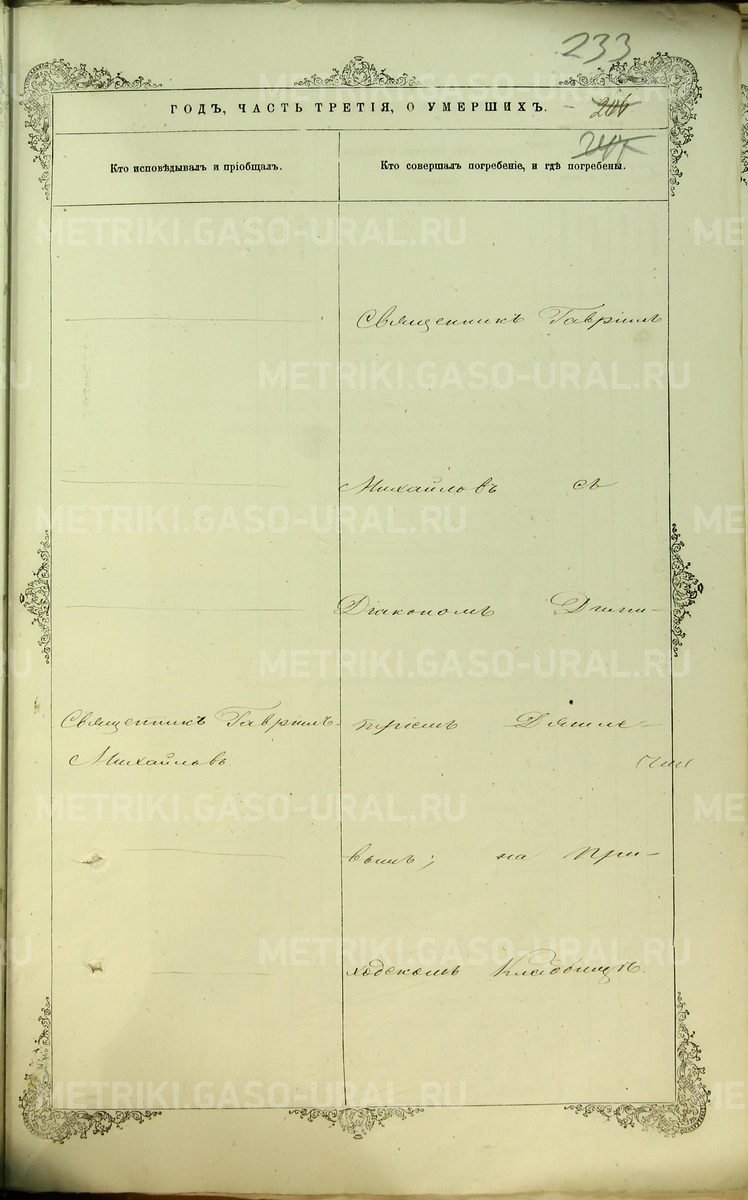 233
ГОДЪ, ЧАСТЬ ТРЕТІЯ, О УМЕРШИХЪ.
206
247
Кто исповѣдывалъ и пріобщалъ.
Кто совершалъ погребеніе, и гдѣ погребены.
Священникъ Гавріилъ
Михайловъ съ
Діакономъ Дими-
Священникъ Гавріилъ
Михайловъ.
тріемъ
вымъ; на При-
ходскомъ Кладбищѣ.
METRIKI.GASO-URAL.RU